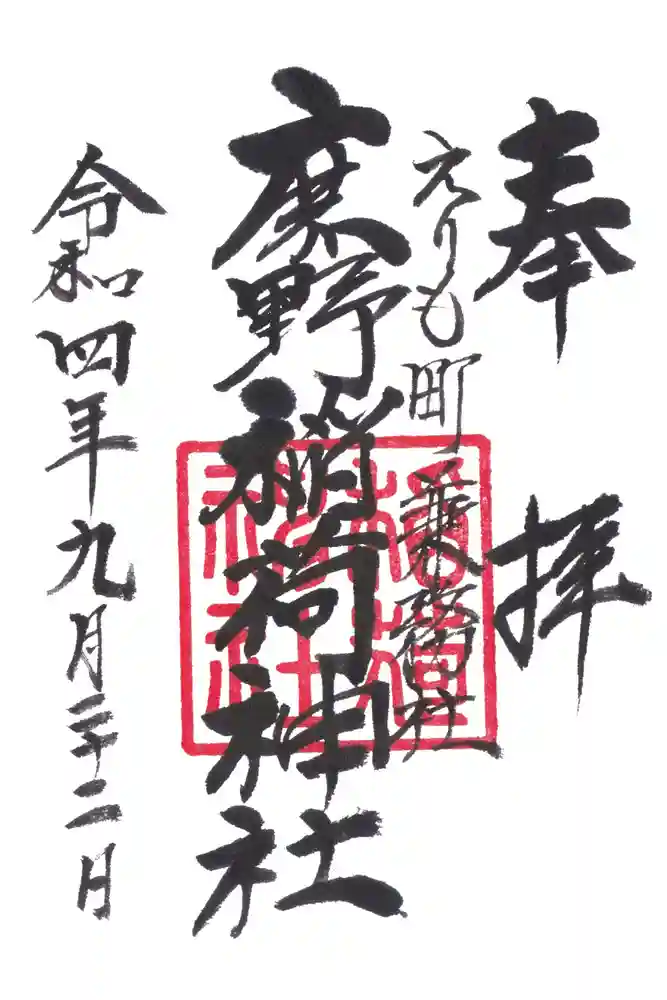 奉拝
えりも町兼務社
庶野稲荷神社
令和四年九月二十二日